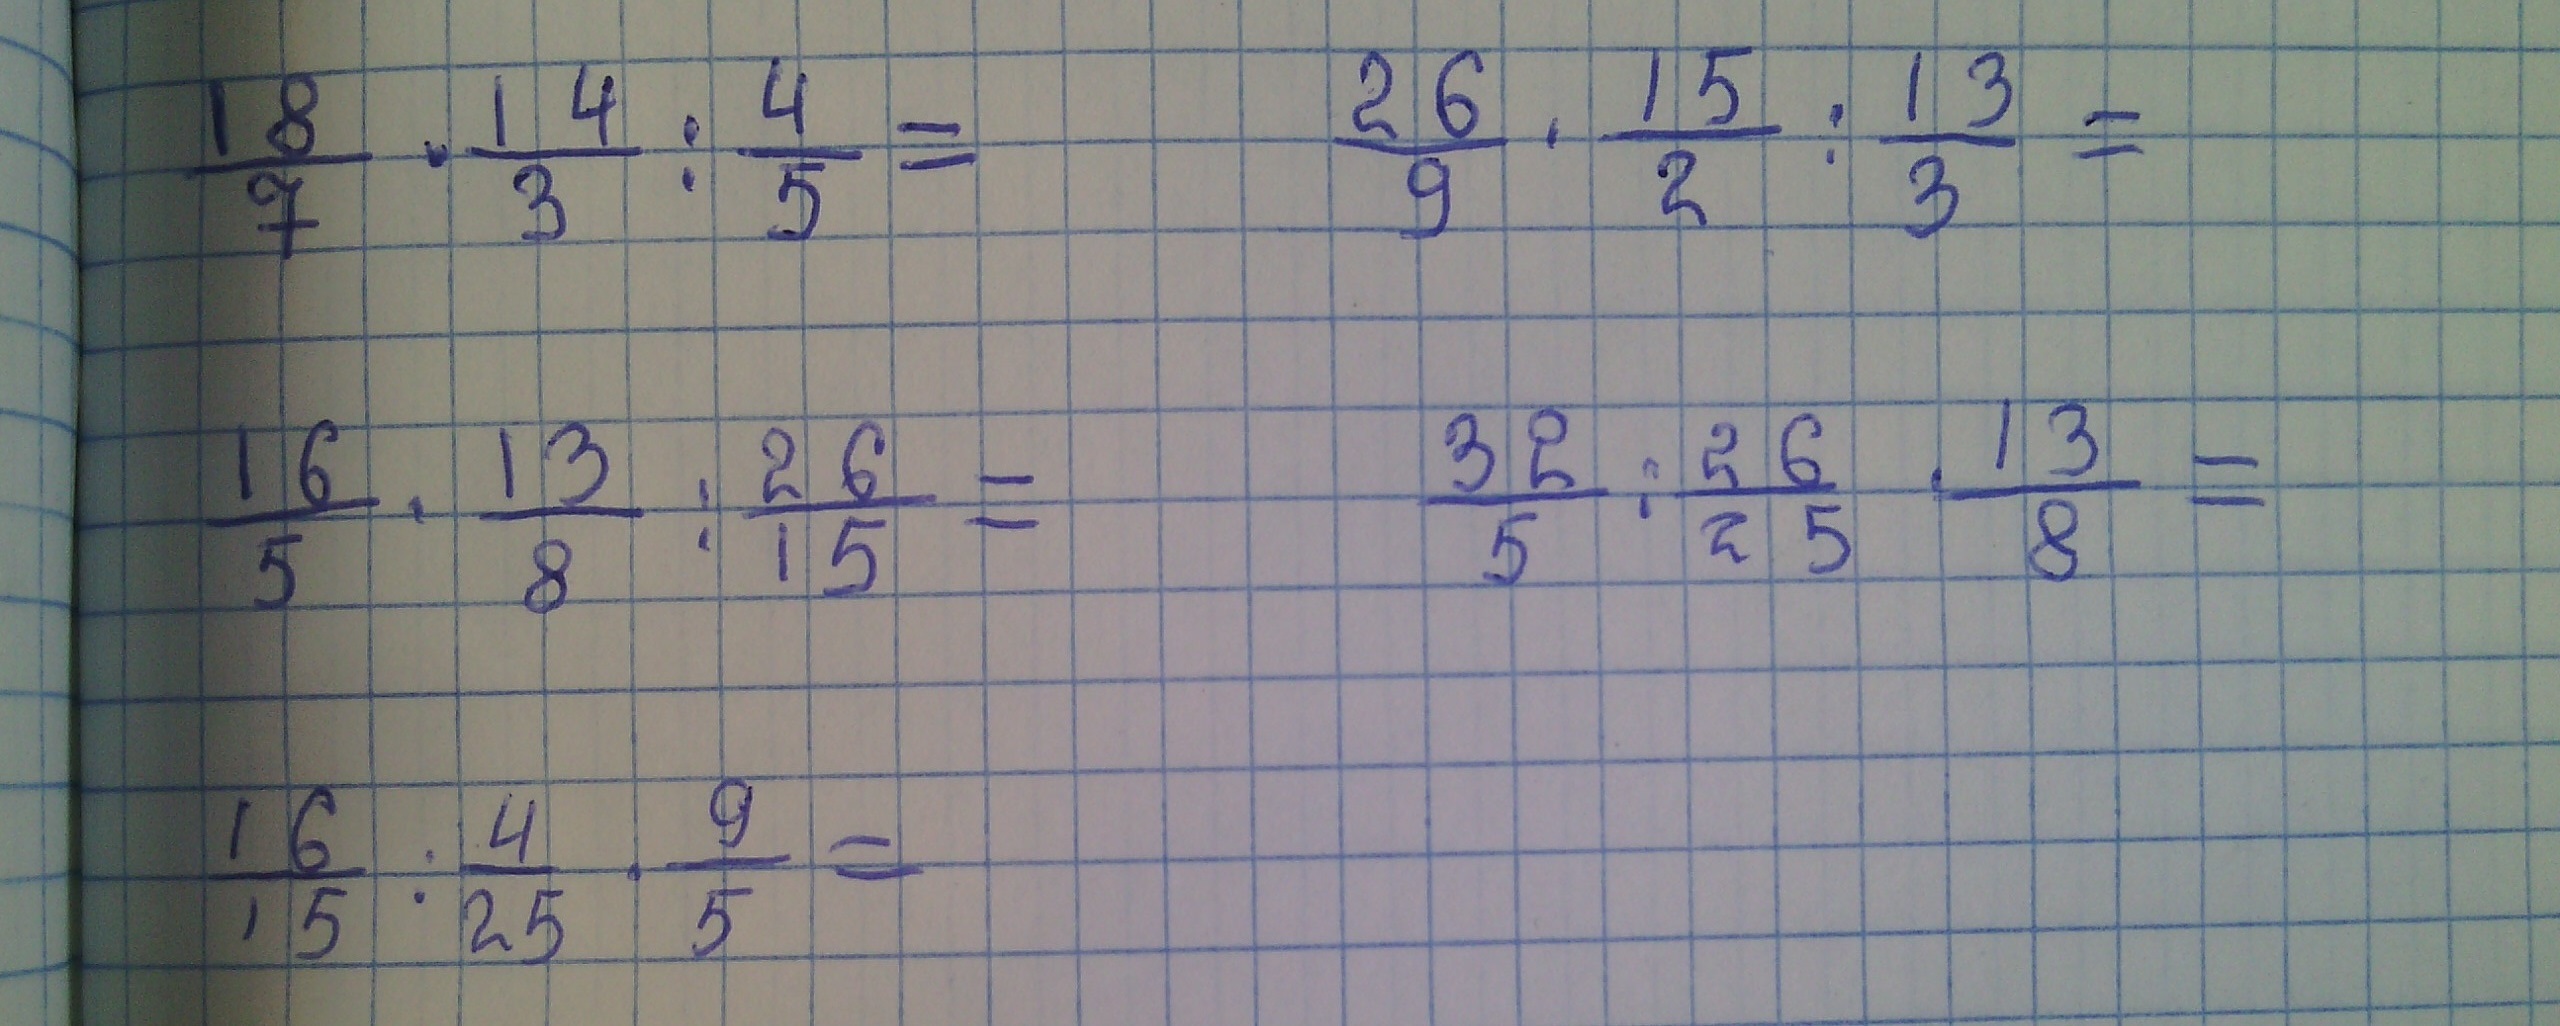 18/7 · 14/3 : 4/5 = 26/9 · 15/2 : 13/3 =
16/5 · 13/8 : 26/15 = 32/5 : 26/25 · 13/8 =
16/15 : 4/25 · 9/5 =